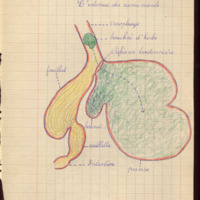 L'estomac des ruminants
œsophage
bouchée d'herbe
feuillet
bonnet
caillette
intestin
panse